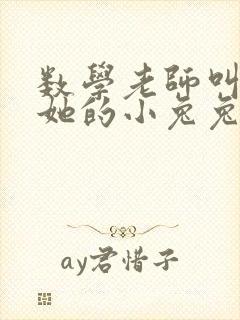 数學老師叫
她的小兔兔
ay君惜子